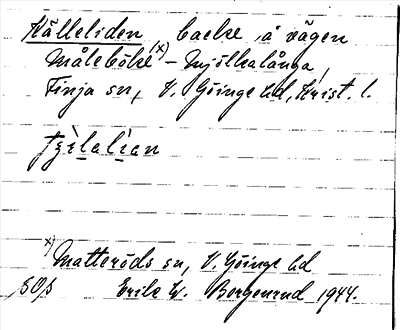 Källeliden backe å vägen
Måleböke x) - Mjölkalånga,
Finja sn, V. Göinge hd, Krist. l.

x) Matteröds sn, V. Göinge hd
SOS Erik W. Borgenrud 1944.